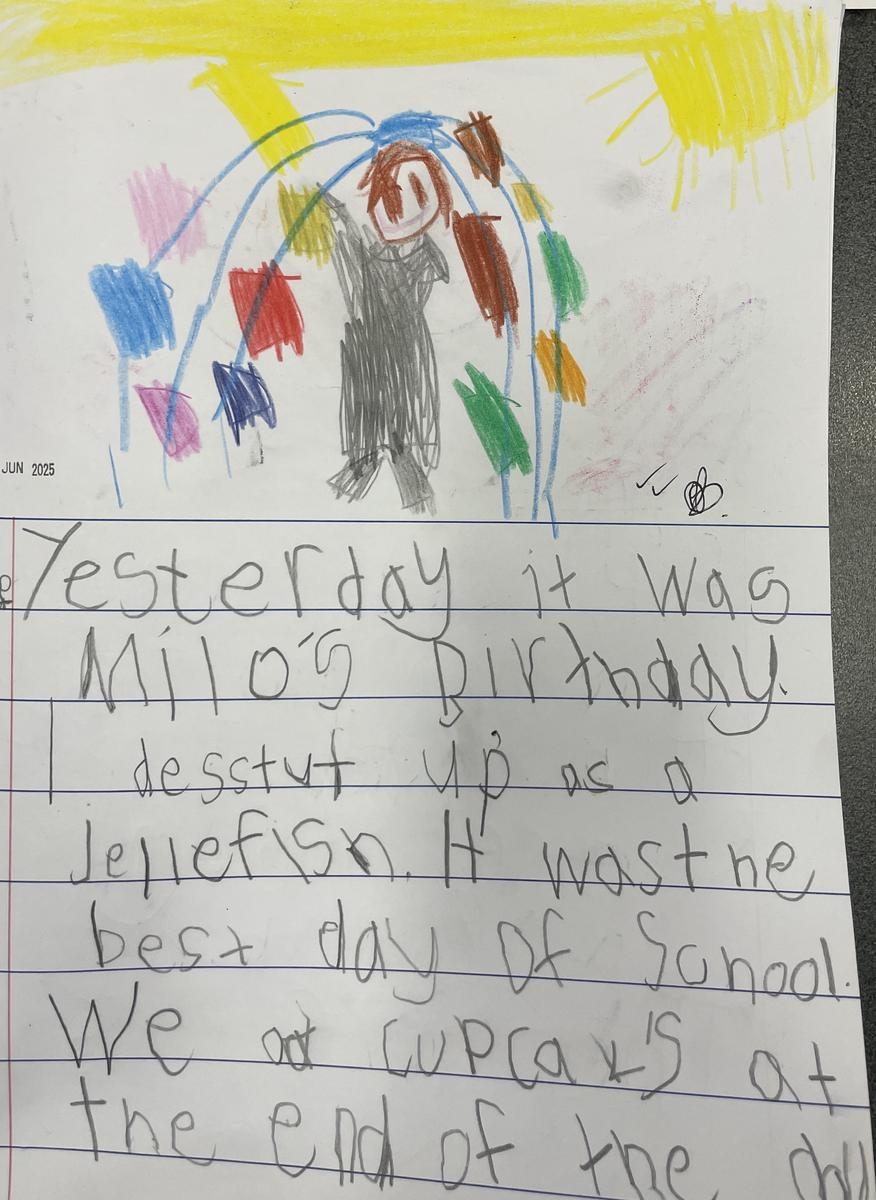 JUN 2025
Yesterday it was
Milo's Birthday.
I desstut up as a
Jellefish. It was the
best day of School.
We at cupcak's at
the end of the day